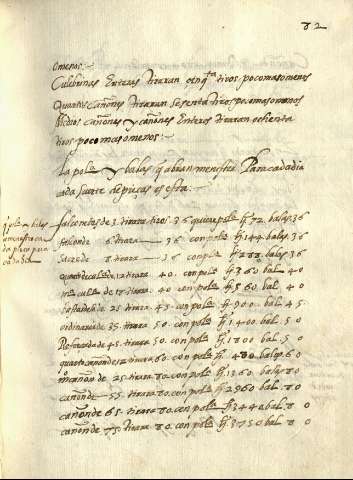 82
omenos.
Culebrinas Enteras tiraran tiros poco mas o menos
Quartos cañones tiraran sesenta tiros poco mas o menos
Medios cañones y cañones Enteros tiraran ochenta
tiros poco mas o menos.
La polª y balas q abran menester Para cada dia
cada suerte de pieças es esta.
polª y balas
para
cada dia
falconetes de 3. tirara tiros. 36 quiere polª 72. balas. 36
falcon de 6 tirara 36 con polª 144. balas. 36
Sacre de 8 tirara 36 con polª balas. 36
de 12 tirara 40. con polª 360 bal. 40
mª de 18 tirara 40. con polª 560. bal. 40
de 25 tirara. 45. con polª 900. bal. 45.
ordinaria de 35. tirara. 50. con polª 1400. bal. 50
Reforçada de 45. tirara. 50. con polª 1800 bal. 50
quarto cañon de 12 tirara 60. con polª 480. balas. 60
mº cañon de 25 tirara 80. con polª 1360. balas. 80
cañon de 55. tirara 80. con polª 2960 bal. 80
cañon de 65. tirara 80. con polª 3440. bal. 80
cañon de 75. tirara 80. con polª 3750 bal. 80